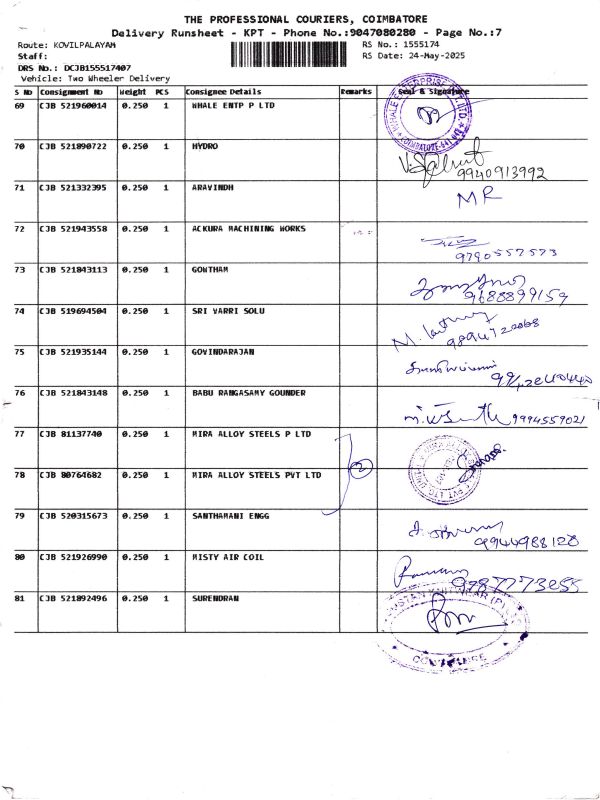 THE PROFESSIONAL COURIERS, COIMBATORE
Delivery Runsheet - KPT - Phone No.:9047080280 - Page No.:7
Route: KOVILPALAYAM RS No.: 1555174
Staff: RS Date: 24-May-2025
DRS No.: DCJB155517407
Vehicle: Two Wheeler Delivery
S NO Consignment No Weight PCS Consignee Details Remarks Seal & Signature
69 CJB 521960014 0.250 1 WHALE ENTP P LTD
70 CJB 521890722 0.250 1 HYDRO
9940913992
71 CJB 521332395 0.250 1 ARAVINDH MR
72 CJB 521943558 0.250 1 ACKURA MACHINING WORKS
9790557573
73 CJB 521843113 0.250 1 GOWTHAM
9688899159
74 CJB 519694504 0.250 1 SRI VARRI SOLU
75 CJB 521935144 0.250 1 GOVINDARAJAN
76 CJB 521843148 0.250 1 BABU RANGASAMY GOUNDER
9994559021
77 CJB 81137740 0.250 1 MIRA ALLOY STEELS P LTD
2
78 CJB 80764682 0.250 1 MIRA ALLOY STEELS PVT LTD
79 CJB 520315673 0.250 1 SANTHAMANI ENGG
9944988128
80 CJB 521926990 0.250 1 MISTY AIR COIL
81 CJB 521892496 0.250 1 SURENDRAN